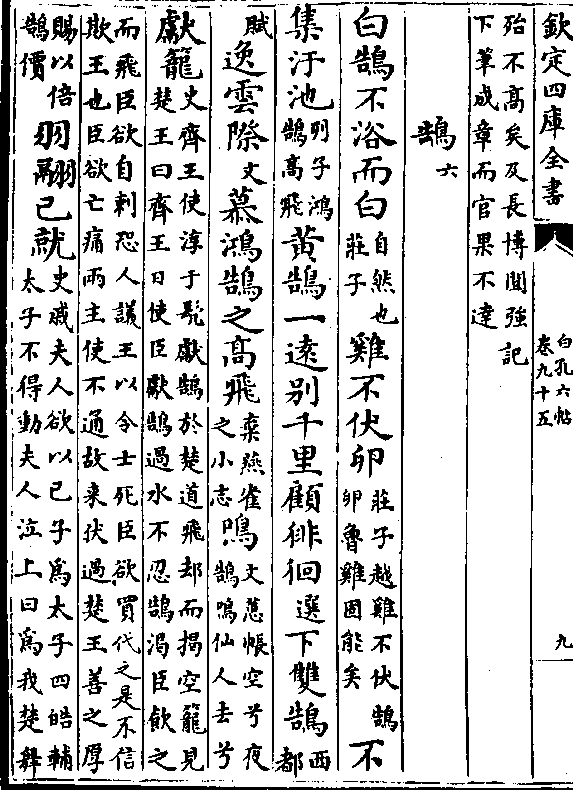 欽定四庫全書
白孔六帖
卷九十五
九
殆不高矣及長博聞強記
下筆成章而官果不達
鵠六
白鵠不浴而白自然也莊子雞不伏卵莊子越雞不伏鵠卵魯雞固能矣不
集汙池列子鴻鵠高飛黃鵠一遠別千里顧徘徊選下雙鵠西都
賦逸雲際文慕鴻鵠之高飛棄燕雀之小志鳴文蕙帳空兮夜鵠鳴仙人去兮
獻籠史齊王使淳于髡獻鵠於楚道飛却而揭空籠見楚王曰齊王日使臣獻鵠過水不忍鵠渴臣飲之
而飛臣欲自刺恐人議王以令士死臣欲買代之是不信欺王也臣欲亡痛兩主使不通故来伏過楚王善之厚
賜以倍鵠價羽翮已就史戚夫人欲以己子為太子四皓輔太子不得動夫人泣上曰為我楚舞